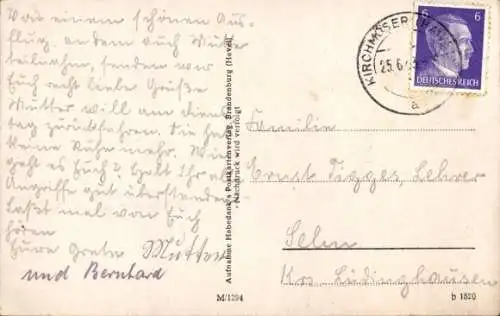 Von einem schönen Aus-
flug, an dem auch Mutter
teilnahm, senden wir
Euch recht liebe Grüße
Mutter will am Diens
tag zurückfahren. Sie hat
keine Ruhe mehr. Wie
geht es Euch? Habt Ihr die
Angriffe gut überstanden
Laßt mal von Euch
hören
Eure Grete Mutter
und Bernhard
Aufnahme Habedank's Postkartenverlag, Brandenburg (Havel)
Nachdruck wird verfolgt
M/1294
KIRCHMÖSER
25.6.
a
6 6
DEUTSCHES REICH
Familie
Ernst Tigges, Lehrer
Selm
Krs Lüdinghausen
b 1520